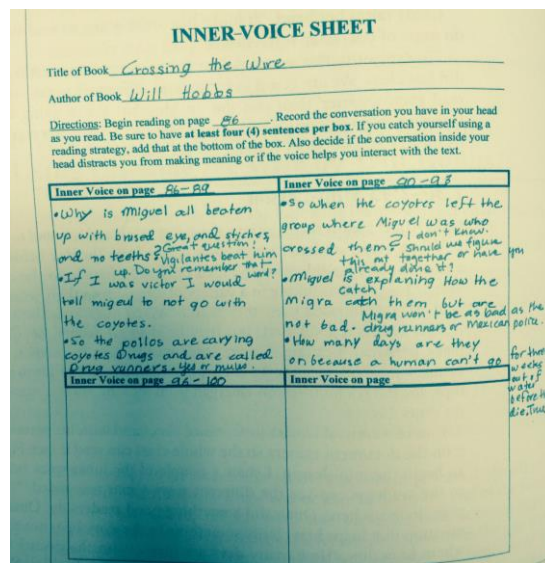 INNER-VOICE SHEET
Title of Book Crossing the Wire
Author of Book Will Hobbs
Directions: Begin reading on page 86. Record the conversation you have in your head
as you read. Be sure to have at least four (4) sentences per box. If you catch yourself using a
reading strategy, add that at the bottom of the box. Also decide if the conversation inside your
head distracts you from making meaning or if the voice helps you interact with the text.
Inner Voice on page 86-89
•Why is miguel all beaten
up with brused eye, and stiches
and no teeths?
Great question!
Vigilantes beat him
up. Do you remember that word?
•If I was victor I would
tell migeul to not go with
the coyotes.
•So the pollos are carying
coyotes Drugs and are called
Drug runners. Yes or mules.
Inner Voice on page 90-93
•So when the coyotes left the
group where Miguel was who
crossed them?
I don't know.
Should we figure
this out together or have you
already done it?
•Miguel is explaning How the
catch
migra catch them but are
not bad.
Migra won't be as bad as the
drug runners or Mexican police.
•How many days are they
on because a human can't go
for three
weeks
out of
water
before th
die. True
Inner Voice on page 96-100
Inner Voice on page